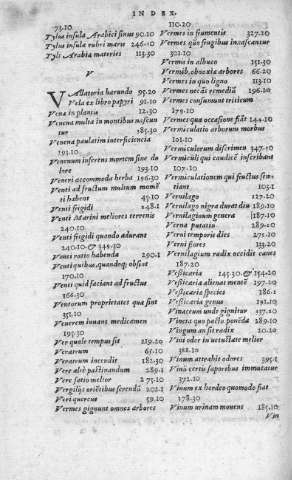 INDEX.
73.10
Tylus insula Arabici sinus 90.20
Tylus insula rubri maris 246.10
Tyli Arabia materies 113.30
V
Vallatoria harundo 95.20
Vela ex libro papyri 91.10
Vena in plantis 12.30
Venena multa in montibus nascuntur 185.30
Venena paulatim interficiencia
193.10
Venenum inferens mortem sine dolore 193.10
Veneni accommoda herba 196.30
Venti ad fructum multum momenti habent 49.10
Venti frigidi 248.1
Venti Marini meliores terrenis
240.10
Venti frigidi quando adurant
240.10. & 249.30
Venti ratio habenda 290.1
Venti quibus, quandoque obsint
170.10
Venti quid faciant ad fructus
166.30
Ventorum proprietates qua sint
351.10
Venerem iouans medicamen
195.30
Ver quale tempus sit 219.20
Veratrum 61.10
Veratrum incendit 182.30
Vere alte pastinandum 289.1
Vere satio melior 275.10
Vergiliis orientibus serendo 202.1
Veri quercus 59.10
Vermes gignunt omnes arbores
110.20
Vermes in frumentis 327.20
Vermes que frugibus inascantur
301.10
Vermes in albuco 151.30
Vermib. obnoxia arbores 66.20
Vermes in quo ligno 113.30
Vermes necandi remedia 196.10
Vermes consumunt triticum
179.10
Vermes qua occasione fiat 144.10
Vermiculatio arborum morbus
101.10
Vermiculorum discrimen 347.10
Vermiculi qui caudice inscribant
107.10
Vermiculationem qui fructus sentiant 103.1
Vernilago 127.10
Vernilago nigra duradiu 189.10
Vernilaginum genera 187.10
Verna putatio 289.10
Verni temporis dies 271.10
Verni flores 133.20
Vernilagium radix occidit canes
187.20
Vesicaria 145.30. & 154.20
Vesicaria alienat mentem 197.10
Vesicaria species 186.1
Vesicaria genus 191.10
Vinaceum unde gignitur 137.10
Vinea quo pacto ponenda 289.10
Vingum an sit radix 10.10
Vini odor in uetustate melior
362.30
Vinum attrahit odores 395.1
Vinis certis saporibus immutatur
391.30
Vinum ex hordeo quomodo fiat
178.30
Vinum urinam mouens 185.10
Vin-